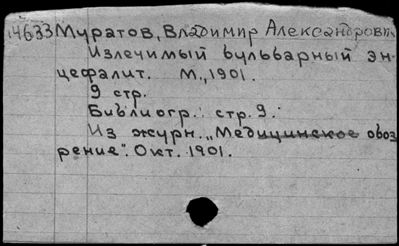 14633 Муратов, Владимир Александрович
Излечимый бульварный эн-
цефалит. М., 1901.
9 стр.
Библиогр.: стр. 9.
Из журн. „Медицинское обоз
рение". Окт. 1901.